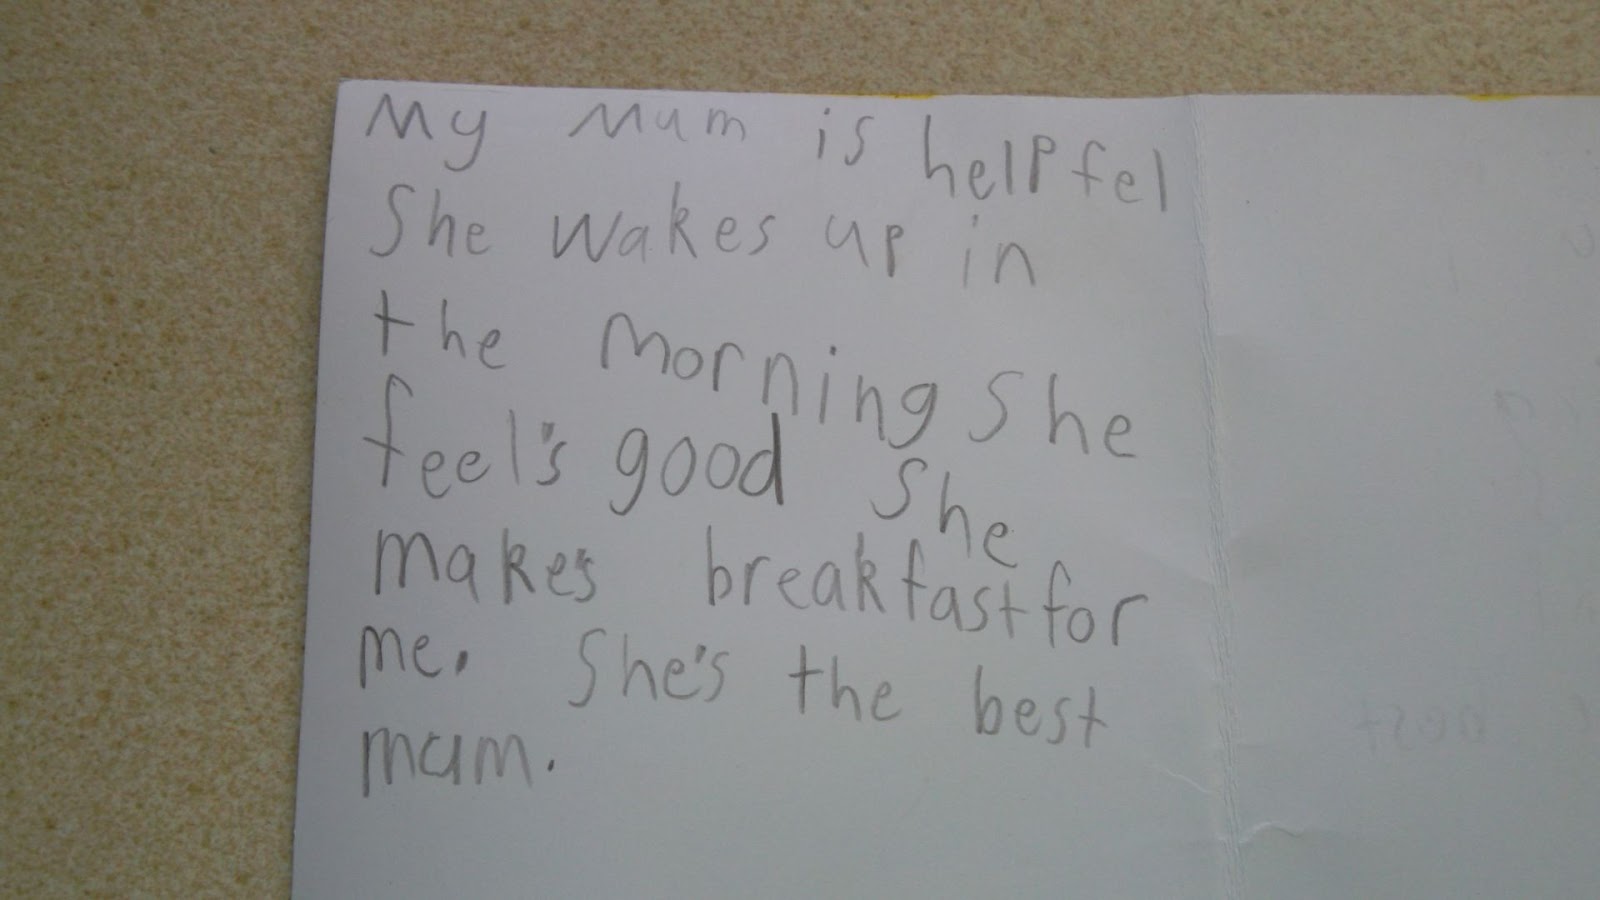 My Mum is helpfel
She wakes up in
the morning She
feel's good She
make's breakfast for
me. She's the best
mum.